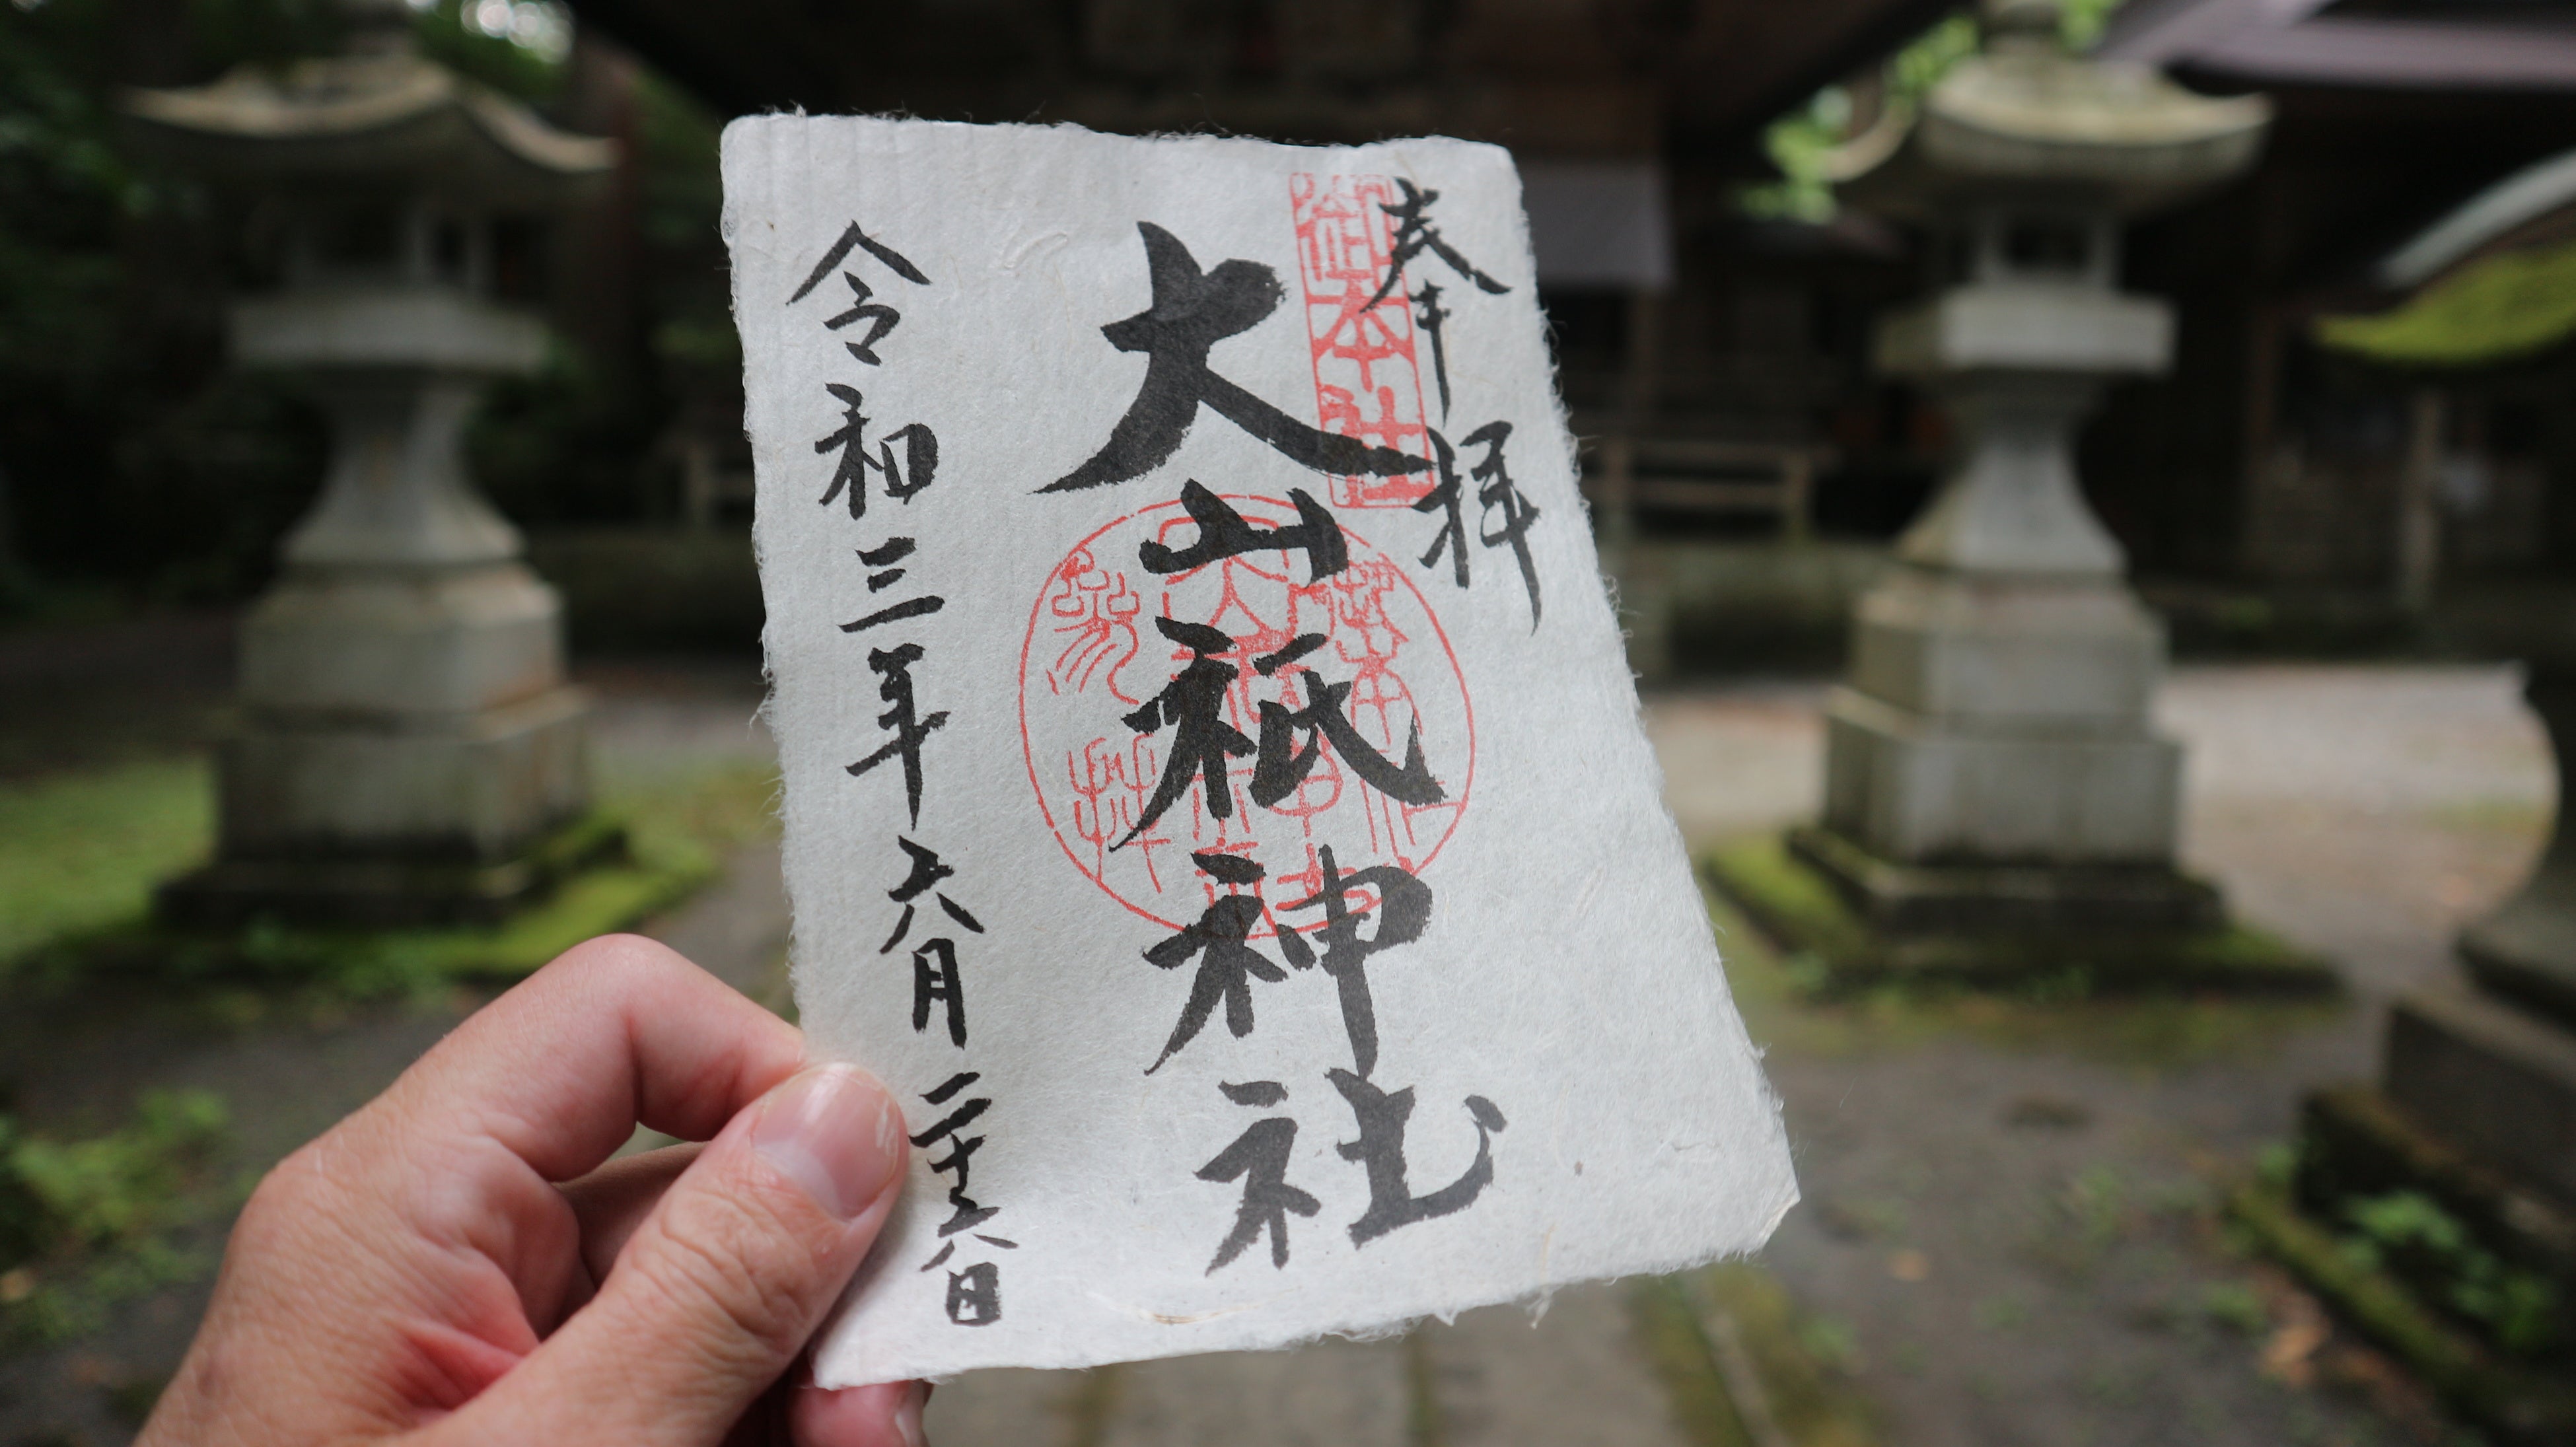 奉拝
御本社
大山祇神社
令和三年六月二十六日